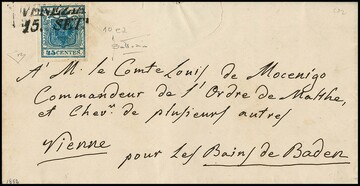 VENEZIA
15. SET
45 CENTES
A' M. le Comte Louis de Mocenigo
Commandeur de l'Ordre de Malthe,
et Chevr. de plusieurs autres
Vienne
pour les Bains de Baden